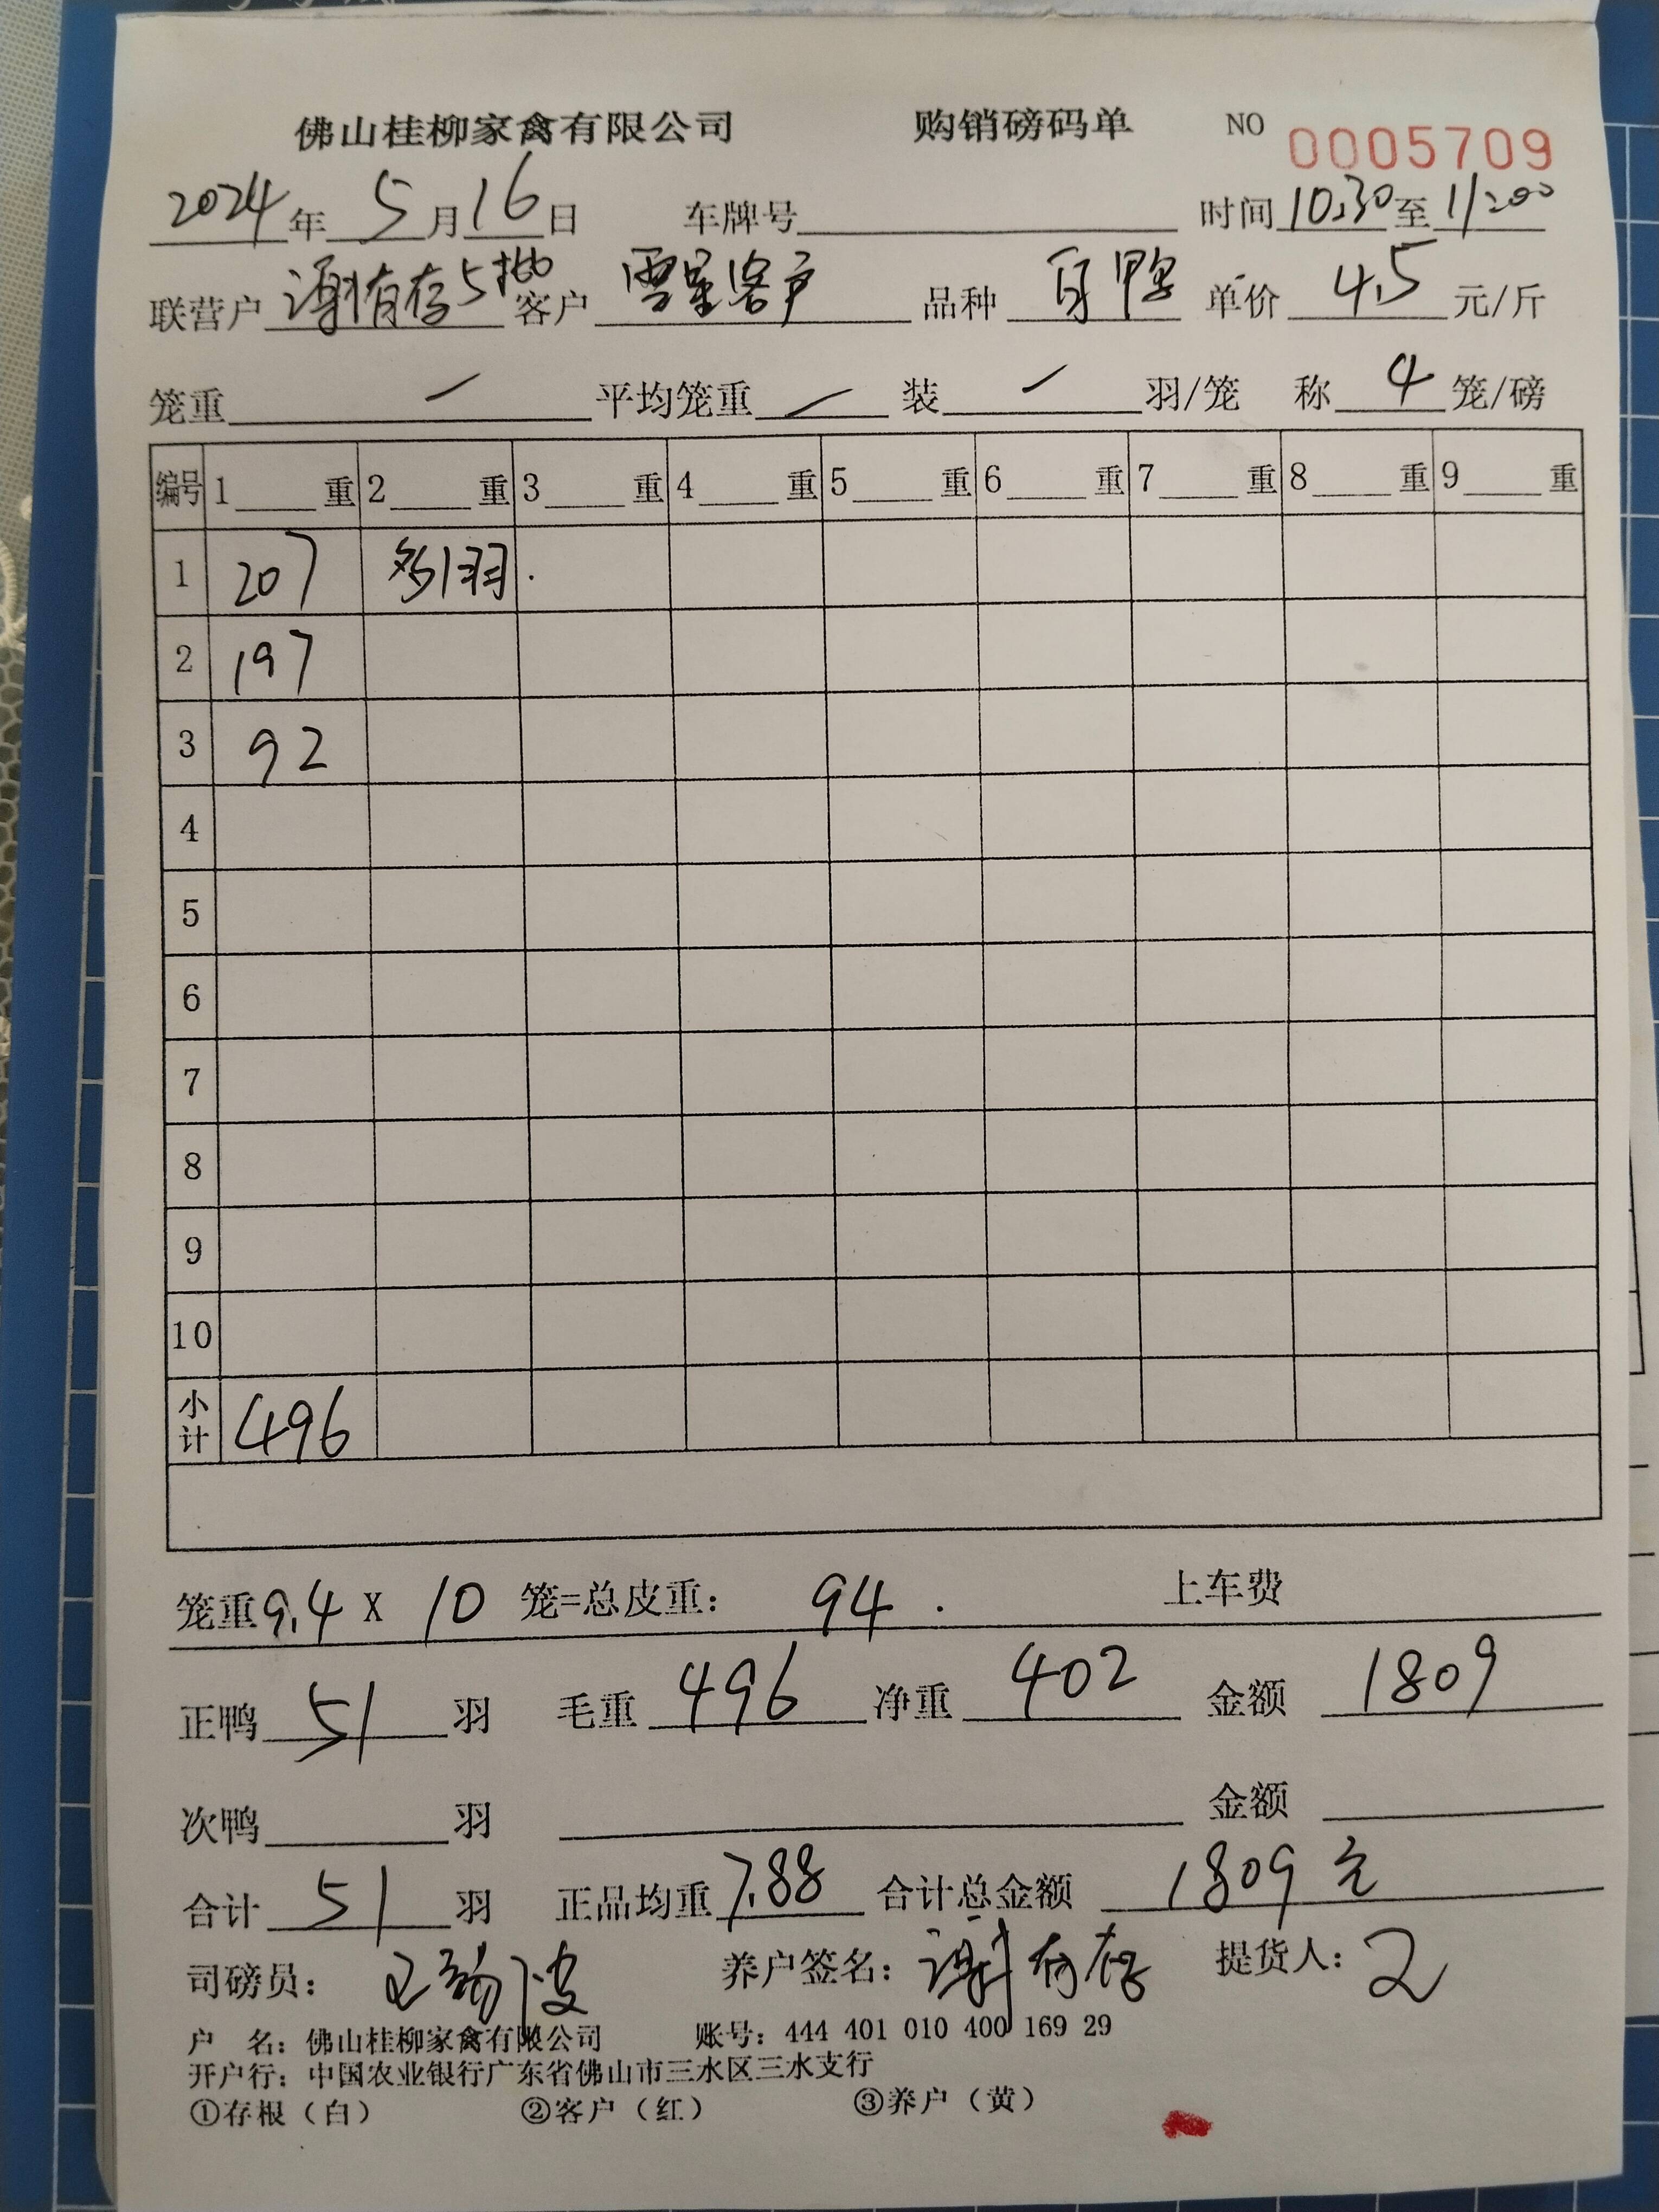 佛山桂柳家禽有限公司 购销磅码单 NO 0005709
2024年 5月16日 车牌号 时间10:30至11:00
联营户 谢有存5批 客户 零星客户 品种 白鸭 单价 4.5 元/斤
笼重 — 平均笼重 — 装 — 羽/笼 称 4 笼/磅
编号 1 重 2 重 3 重 4 重 5 重 6 重 7 重 8 重 9 重
1 207 多1羽.
2 197
3 92
4
5
6
7
8
9
10
小计 496
笼重9.4 X 10 笼=总皮重: 94. 上车费
正鸭 51 羽 毛重 496 净重 402 金额 1809
次鸭 羽 金额
合计 51 羽 正品均重 7.88 合计总金额 1809元
司磅员: 养户签名: 谢有存 提货人:
户 名: 佛山桂柳家禽有限公司 账号: 444 401 010 400 169 29
开户行: 中国农业银行广东省佛山市三水区三水支行
①存根（白） ②客户（红） ③养户（黄）